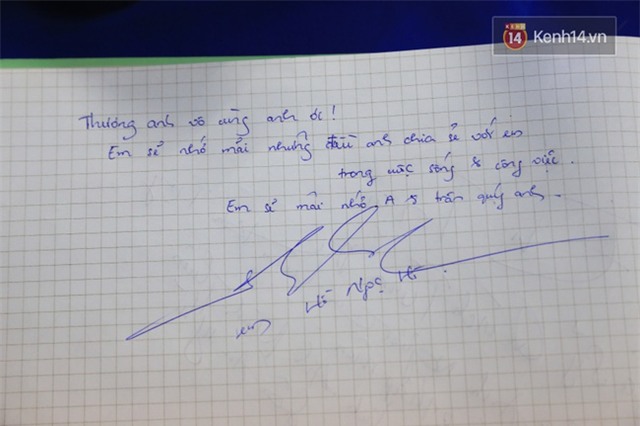 14 Kenh14.vn
Thương anh vô cùng anh ơi!
Em sẽ nhớ mãi những điều anh chia sẻ với em
trong cuộc sống & công việc.
Em sẽ mãi nhớ A & trân quý anh.
em Hồ Ngọc Hà